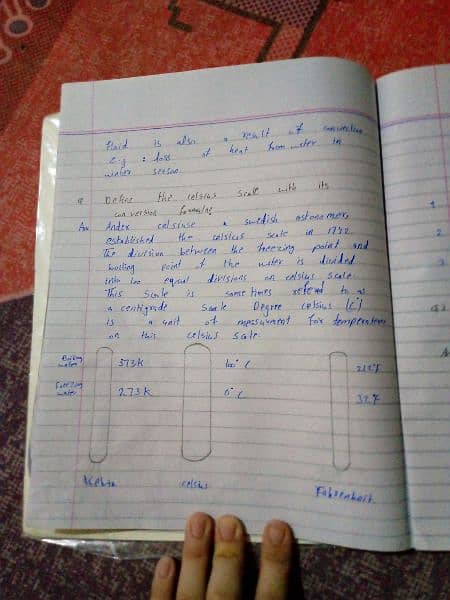 fluid is also a result of convection
e.g : loss of heat from water in
winter season.
Q Define the celsius scale with its
conversion formulas
Ans Andex celsiuse a swedish astonomer
established the celsius scale in 1742
The division between the freezing point and
boiling point of the water is divided
into 100 equal divisions on celsius scale.
This scale is sometimes refered to as
a centigrade scale Degree celsius (c°)
is a unit of measurment for temperature
on this celsius scale.
Boiling water 373K 100° C 212°F
Freezing water 273K 0° C 32°F
Kelvin celsius Fahrenheit
1
2
3